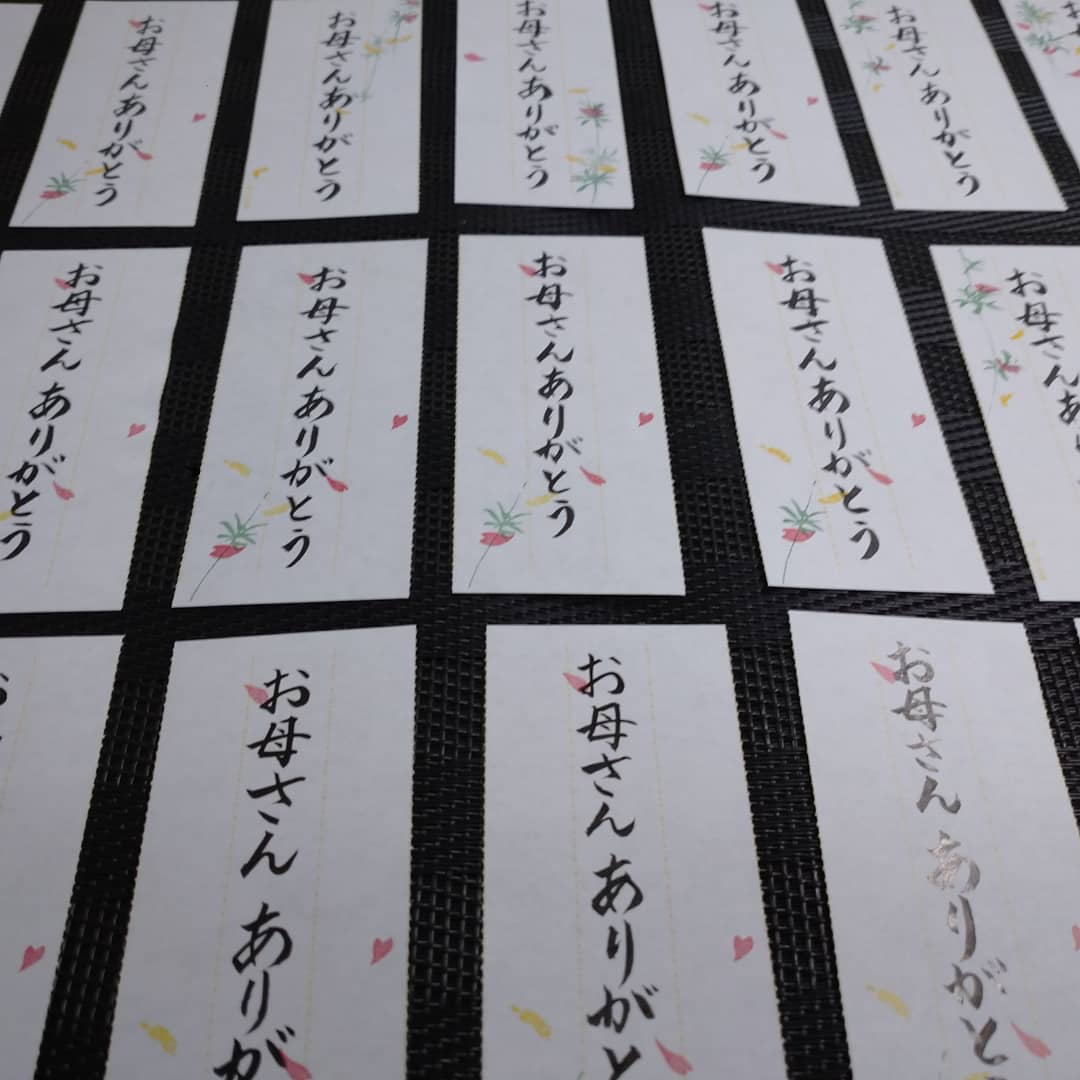 お母さんありがとう
お母さんありがとう
お母さんありがとう
お母さんありがとう
お母さんありがとう
お
お母さんありがとう
お母さんありがとう
お母さんありがとう
お母さんありがとう
お母さんあり
お
お母さんありが
お母さんありがと
お母さんありがと